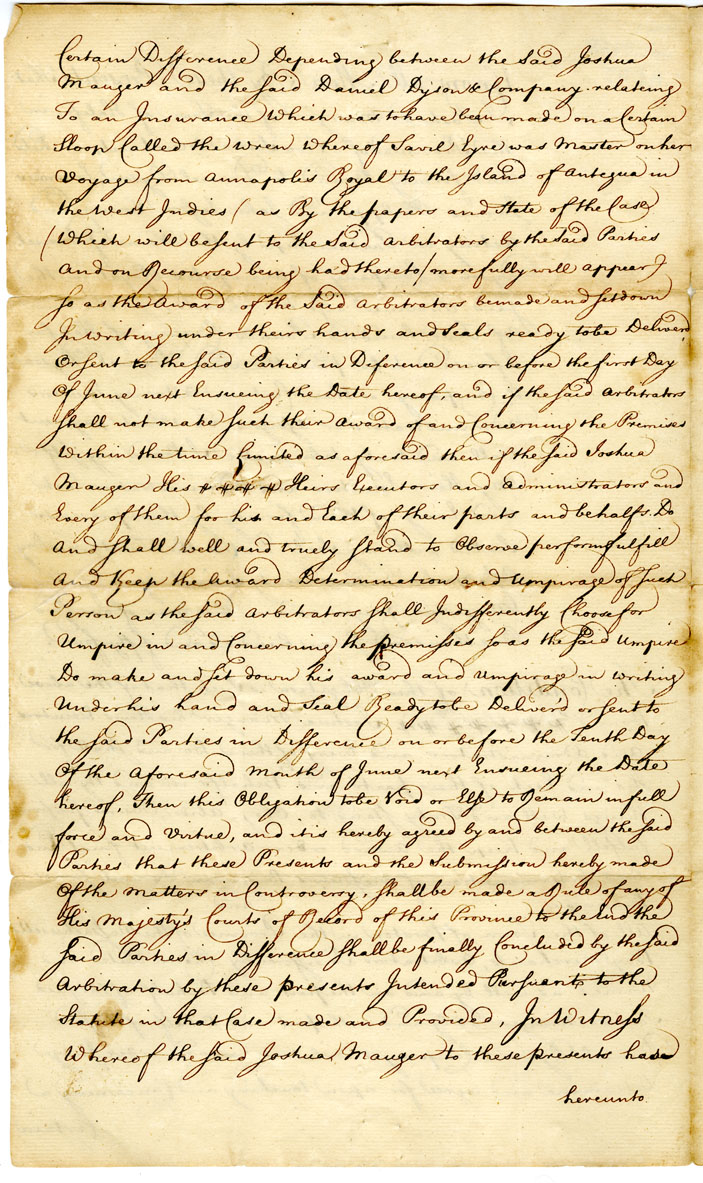 Certain Difference Depending between the Said Joshua
Mauger and the Said Daniel Dyson & Company relateing
To an Insurance Which was to have been made on a Certain
Sloop Called the Wren Whereof Savil Eyre was Master on her
Voyage from Annapolis Royal to the Island of Antegua in
the West Indies ( as By the papers and State of the Case
( Which will be sent to the Said Arbitrators by the Said Parties
And on Recourse being had thereto / more fully will appear )
so as the Award of the Said Arbitrators be made and set down
In Writing under theirs hands and Seals ready to be Deliverd
Or sent to the said Parties in Diference on or before the first Day
Of June next Ensueing the Date hereof, and if the said Arbitrators
Shall not make Such their Award of and Concerning the Premises
Within the time Limited as aforesaid then if the said Joshua
Mauger His Heirs Executors and Administrators and
Every of them for his and Each of their parts and behalfs Do
And Shall well and truely Stand to Observe perform fulfill
And Keep the Award Determination and Umpirage of Such
Person as the said Arbitrators Shall Indifferently Choose for
Umpire in and Concerning the premisses so as the Said Umpire
Do make and set down his award and Umpirage in Writing
Under his hand and Seal Ready to be Deliver'd or sent to
the said Parties in Difference on or before the Tenth Day
Of the Aforesaid Month of June next Ensueing the Date
hereof, Then this Obligation to be Void or Else to Remain in full
force and Virtue, and it is hereby agreed by and between the said
Parties that these Presents and the Submission hereby made
Of the Matters in Controversy, Shall be made a Rule of any of
His Majesty's Courts of Record of this Province to the End the
said Parties in Difference Shall be finally Concluded by the said
Arbitration by these presents Intended Pursuant to the
Statute in that Case made and Provided, In Witness
Whereof the said Joshua Mauger to these presents have
hereunto